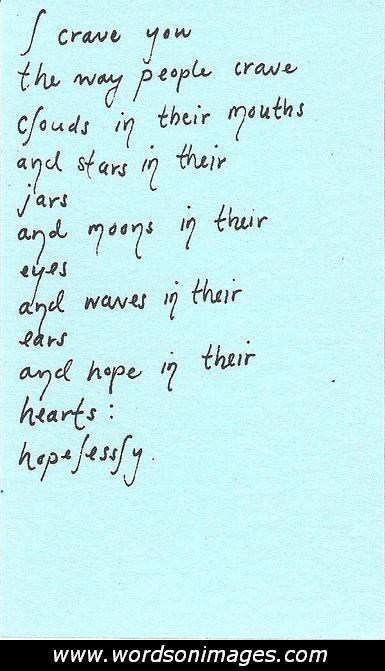 I crave you
the way people crave
clouds in their mouths
and stars in their
jars
and moons in their
eyes
and waves in their
ears
and hope in their
hearts:
hopelessly.
www.wordsonimages.com